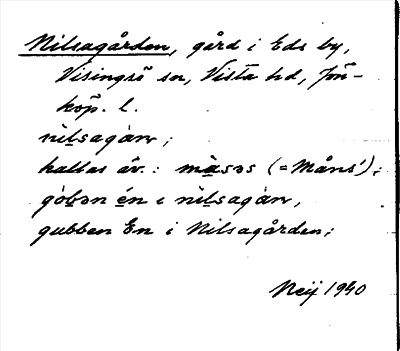 Nilsagården, gård i Eds by,
Visingsö sn, Vista hd, Jön-
köp. l.
nìl̠sagàn;
kallas äv.: mà̠səs (=Måns');
gòb̠ən én ı nìl̠sagàn,
gubben En i Nilsagården;
Neij 1940